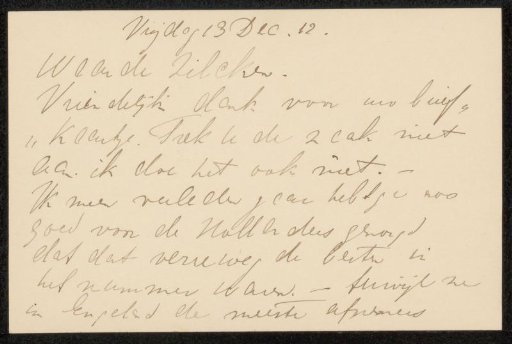 Vrijdag 13 Dec. 12.
Waarde Zilcken.
Vriendelijk dank voor uw brief„
„kaartje. Trek U de zaak niet
aan. ik doe het ook niet. —
Ik meen verleden jaar hebt ge nog
goed voor de Hollanders gezorgd
dat dat verreweg de beste in
het nummer waren. — terwijl ze
in Engeland de meeste afnemers